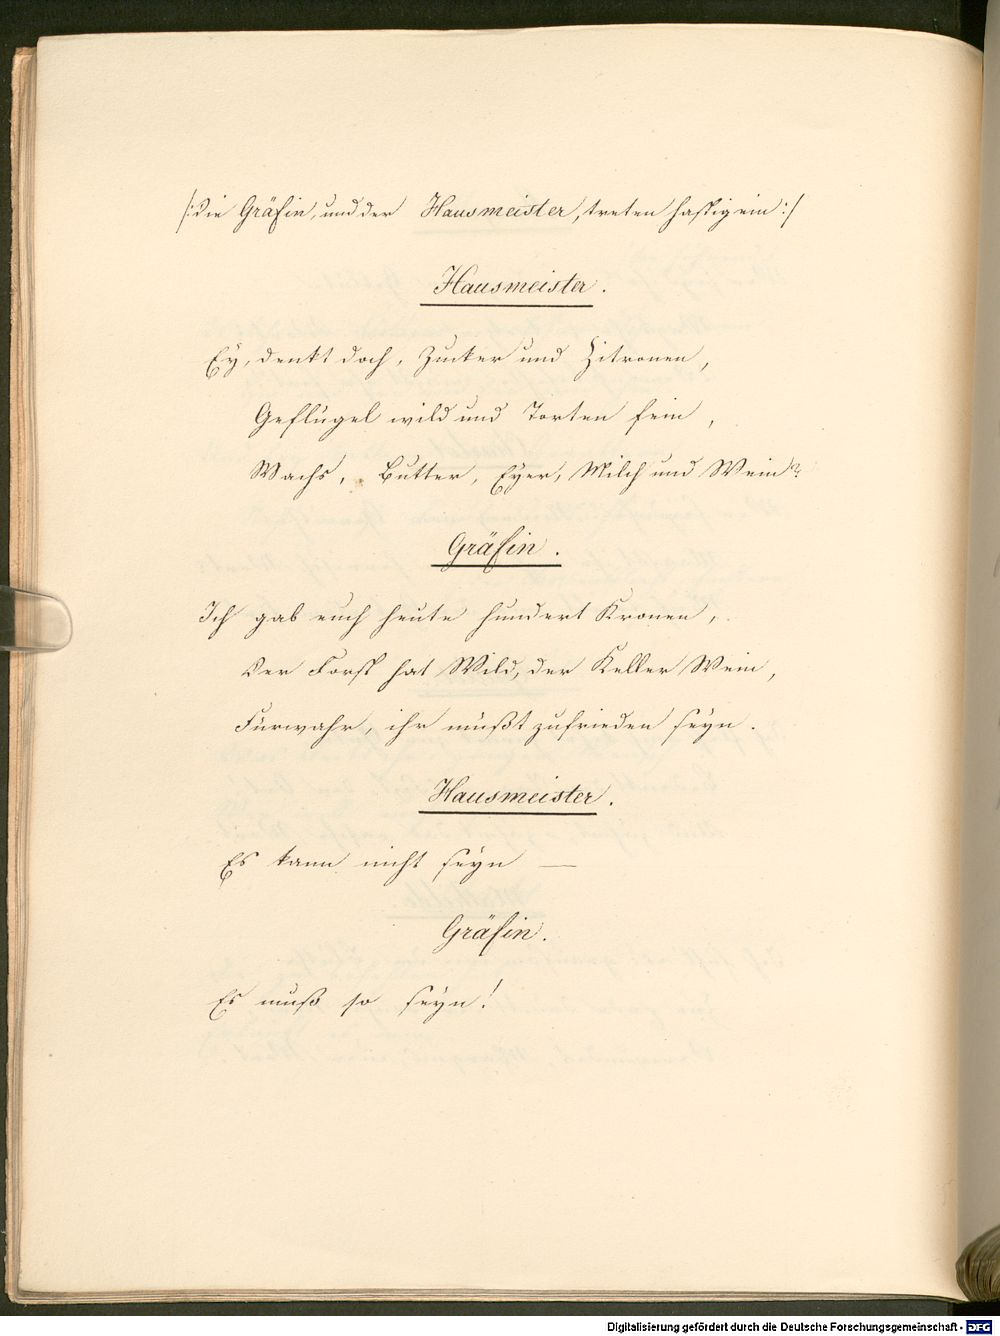 /: Die Gräfin, und der Hausmeister, treten hastig ein :/
Hausmeister.
Ey, denkt doch, Zucker und Zitronen,
Geflügel wild und Torten fein,
Wachs, Butter, Eyer, Milch und Wein?
Gräfin.
Ich gab euch heute hundert Kronen,
Der Forst hat Wild, der Keller Wein,
Fürwahr, ihr müßt zufrieden seyn.
Hausmeister.
Es kann nicht seyn —
Gräfin.
Es muß so seyn!
Digitalisierung gefördert durch die Deutsche Forschungsgemeinschaft - DFG